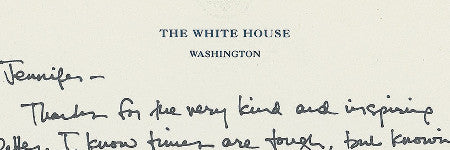 THE WHITE HOUSE
WASHINGTON
Jennifer —
Thanks for the very kind and inspiring
letter. I know times are tough, but knowing